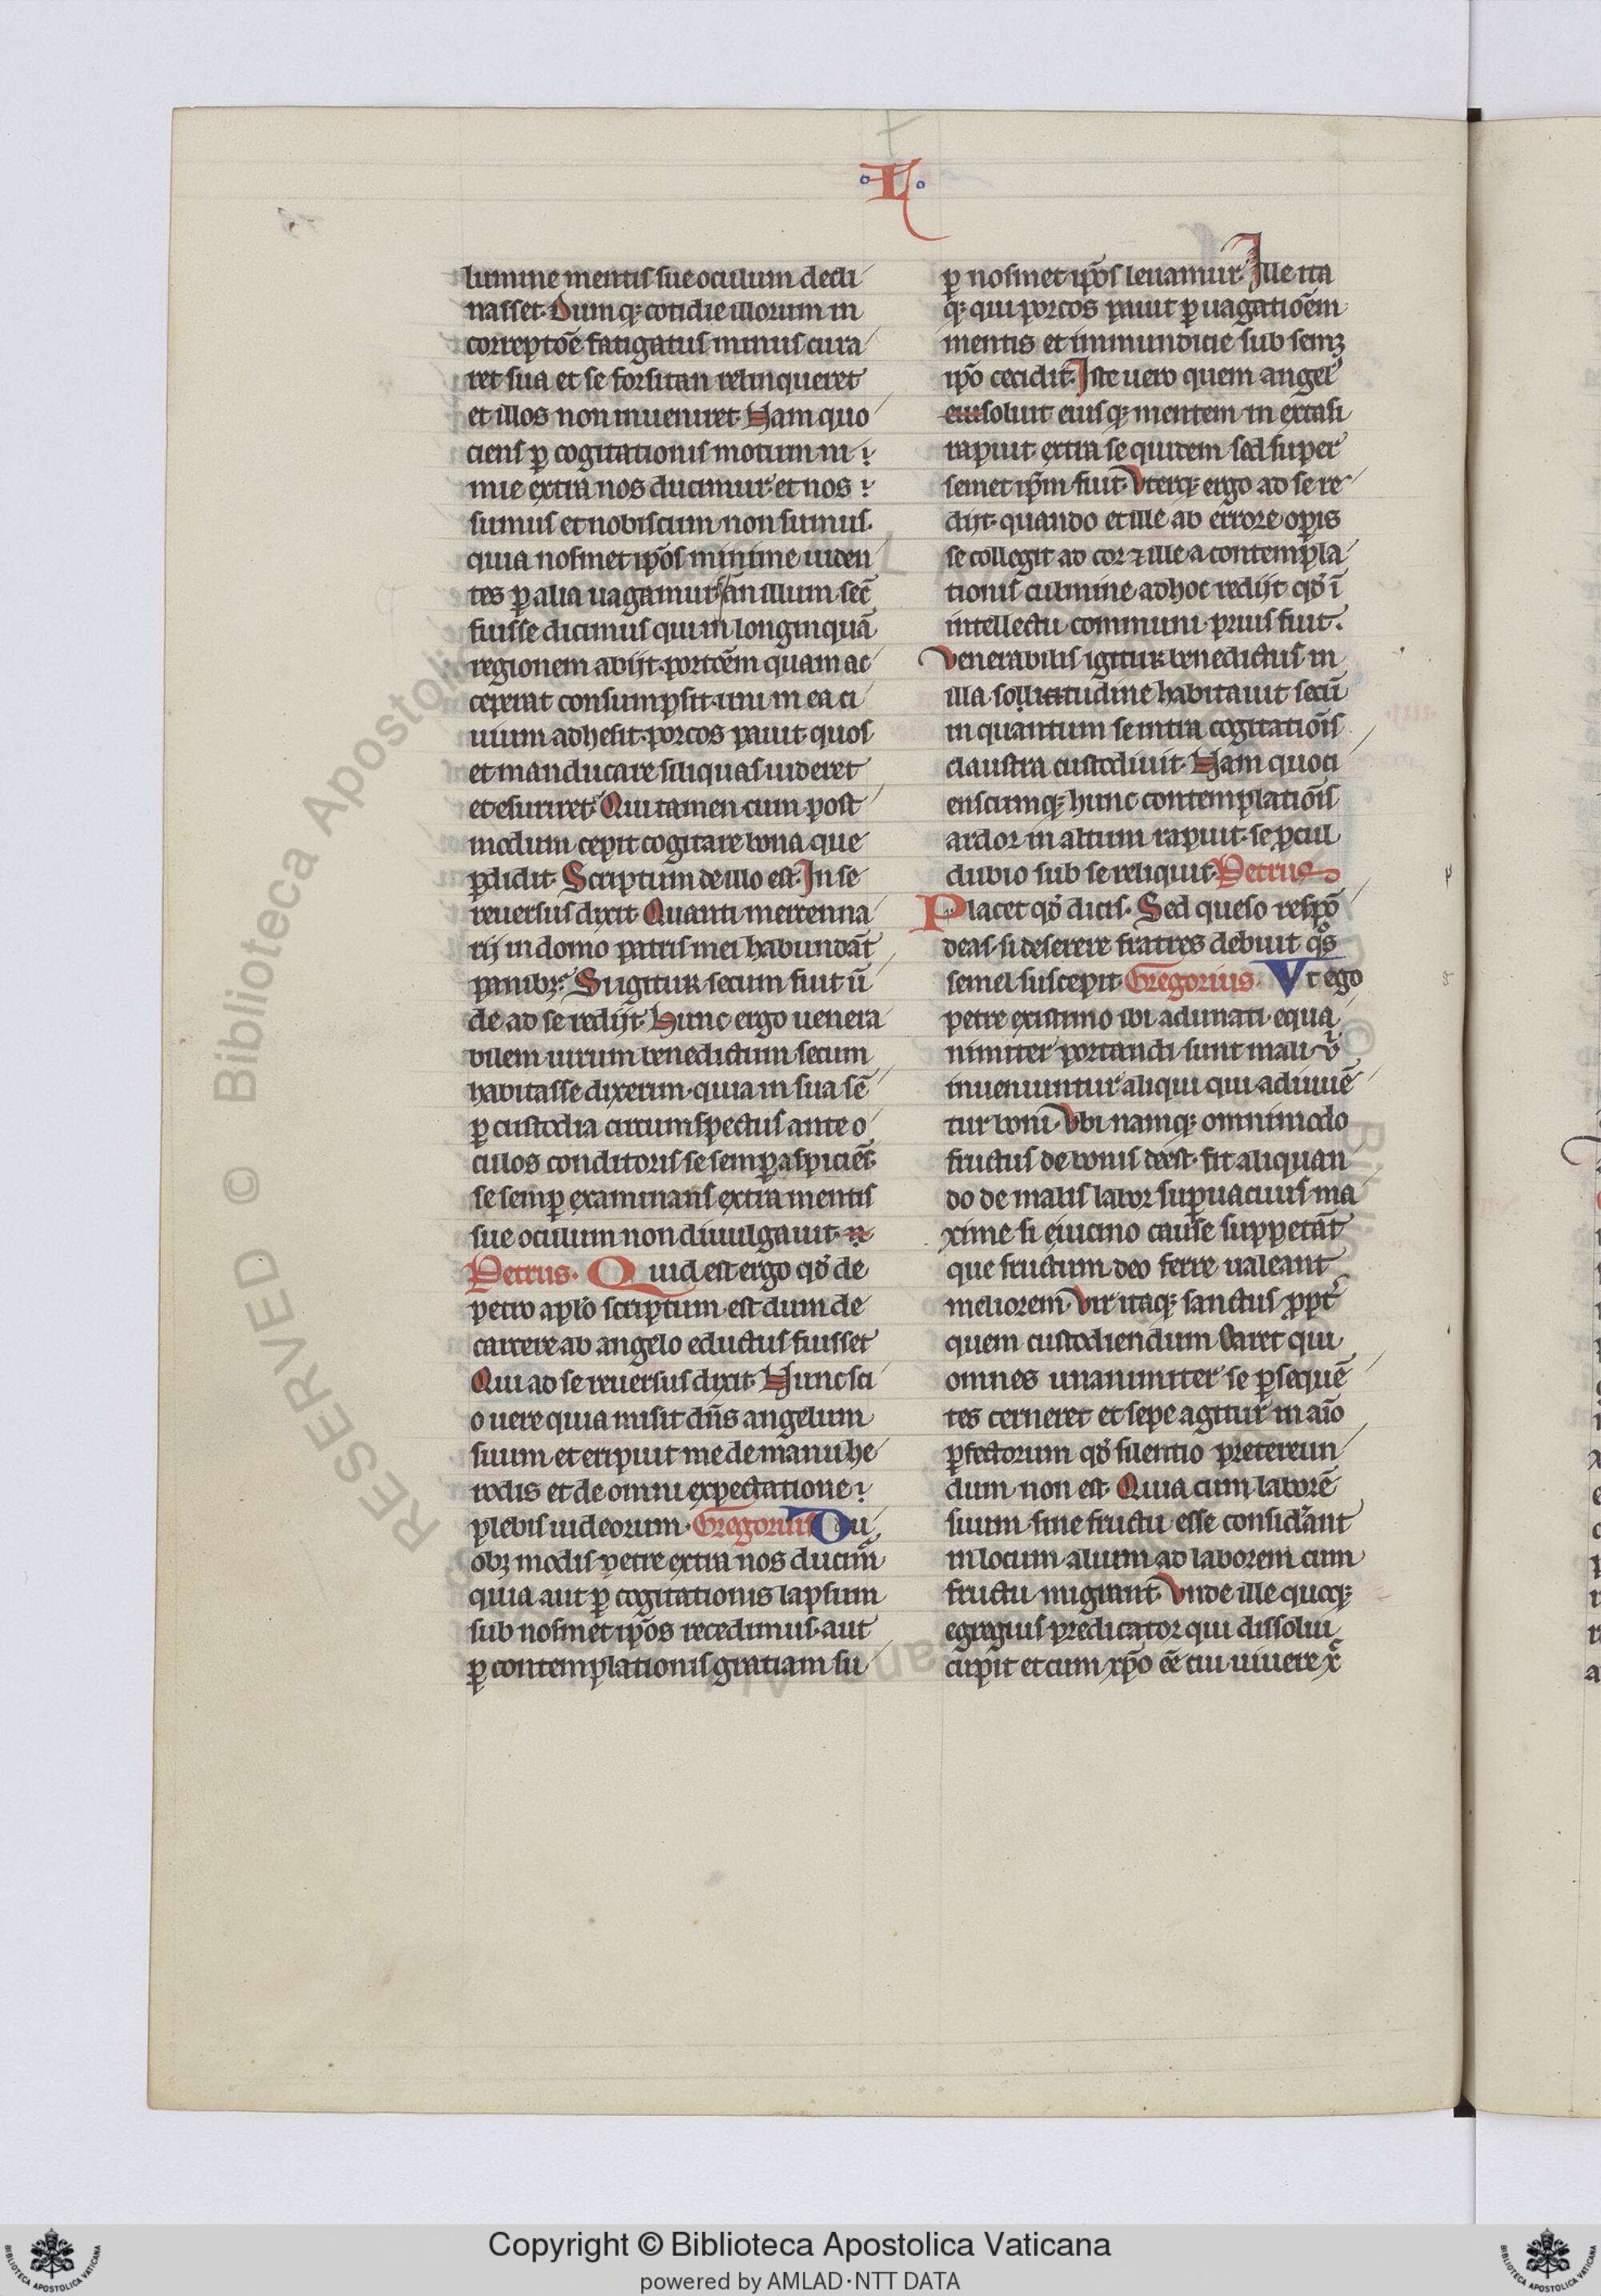 ·L·
lumine mentis sue oculum decli
nasset. Dumq; cotidie illorum in
correptōe fatigatus minus cura
ret sua et se forsitan relinqueret
et illos non inueniret. Nam quo
ciens ꝑ cogitationis motum ni
mie extra nos ducimur. et nos
sumus et nobiscum non sumus.
quia nosmet ip̄os minime uiden
tes ꝑ alia uagamur. an illum sec̄
fuisse dicimus qui in longinquā
regionem abijt. portōem quam ac
ceperat consumpsit. uni in ea ci
uium adhesit. porcos pauit quos
et manducare siliquas uideret
et esuriret. Qui tamen cum post
modum cepit cogitare bona que
ꝑdidit. Scriptum de illo est. In se
reuersus dixit. Quanti mercenna
rij in domo patris mei habundāt
panibꝫ. Si igitur secum fuit ū
de ad se redijt. Hunc ergo uenera
bilem uirum benedictum secum
habitasse dixerim. quia in sua sē
ꝑ custodia circumspectus ante o
culos conditoris se semꝑ aspiciēs.
se semꝑ examinans extra mentis
sue oculum non diuulgauit.
Petrus. Quid est ergo qd̄ de
petro aplo scriptum est dum de
carcere ab angelo eductus fuisset
Qui ad se reuersus dixit. Nunc sci
o uere quia misit dn̄s angelum
suum et eripuit me de manu he
rodis et de omni expectatione
plebis iudeorum. Gregorius Du
obꝫ modis petre extra nos ducim̄
quia aut ꝑ cogitationis lapsum
sub nosmet ip̄os recedimus. aut
ꝑ contemplationis gratiam su
ꝑ nosmet ip̄os leuamur. Ille ita
q; qui porcos pauit ꝑ uagatiōem
mentis et immundicie sub semꝫ
ip̄o cecidit. Iste uero quem angel'
eius soluit eiusq; mentem in extasi
rapuit extra se quidem sed super
semet ip̄m fuit. Vterq; ergo ad se re
dijt. quando et ille ab errore oꝑis
se collegit ad cor ⁊ ille a contempla
tionis culmine ad hoc redijt qd̄ ī
intellectu communi prius fuit.
Venerabilis igitur benedictus in
illa sollicitudine habitauit secū
in quantum se intra cogitatiōis
claustra custodiuit. Nam quoci
enscumq; hunc contemplatiōis
ardor in altum rapuit. se ꝓcul
dubio sub se reliquit. Petrus
Placet qd̄ dicis. Sed queso respō
deas. si deserere fratres debuit qͦs
semel suscepit. Gregorius. Vt ego
petre existimo ibi adunati equa
nimiter portandi sunt mali. ū
inueniuntur aliqui qui adiuuē
tur boni. Vbi namq; omnimodo
fructus de bonis deest. fit aliquan
do de malis labor suꝑuacuus. ma
xime si e uicino cause suppetāt
que fructum deo ferre ualeant
meliorem. Vir itaq; sanctus ꝓpt'
quem custodiendum staret qui
omnes unanimiter se ꝑsequē
tes cerneret et sepe agitur in aīo
ꝑfectorum qd̄ silentio pretereun
dum non est. Quia cum laborē
suum sine fructu esse considerant
in locum alium ad laborem cum
fructu migrant. Vnde ille quoq;
egregius predicator qui dissolui
cupit et cum xp̄o eē cui uiuere xc̄
Copyright © Biblioteca Apostolica Vaticana
powered by AMLAD·NTT DATA